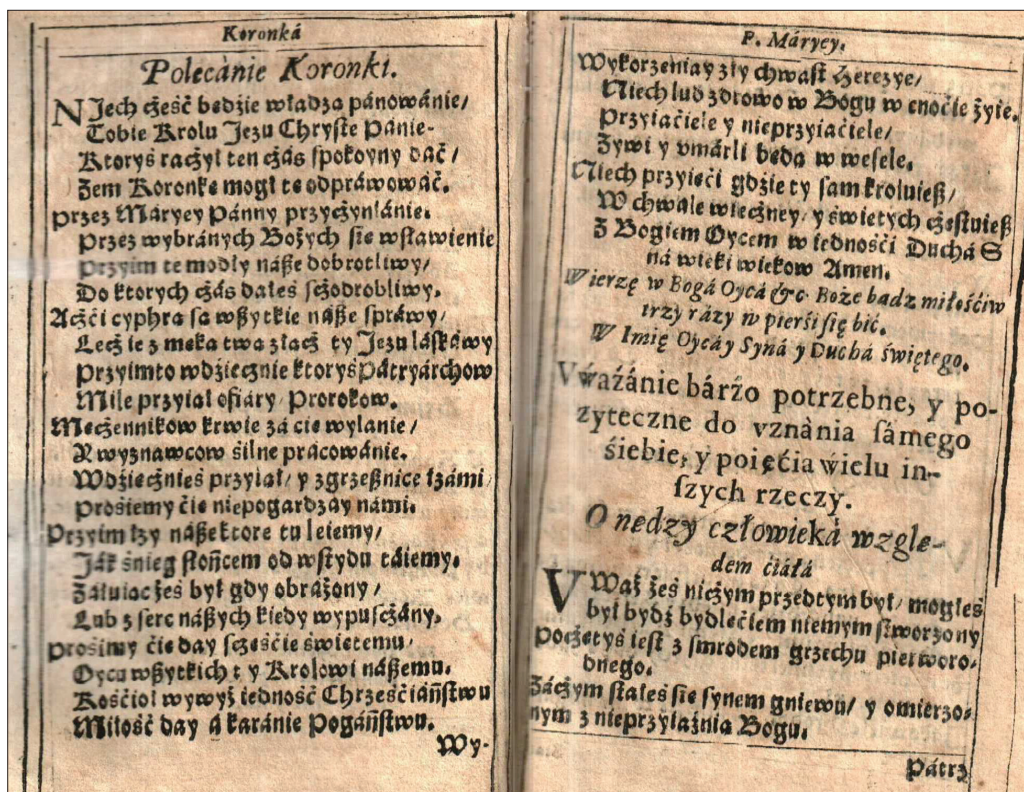 Koronká
Polecánie Koronki.
NJech cżeść bedżie władza pánowánie/
Tobie Krolu Jezu Chryste Pánie-
Ktoryś racżył ten cżás spokoyny dáć/
Żem Koronke mogł te odpráwowáć.
Przez Máryey Pánny przycżyniánie.
Przez wybránych Bożych sie wstawienie
Przyim te modły náße dobrotliwy/
Do ktorych cżás dałeś scżodrobliwy.
Acżći cyphra sa wßytkie náße spráwy/
Lecż ie z meka twa złacż ty Jezu láskáwy
Przyimto wdżiecżnie ktoryś Pátryarchow
Mile przyiał ofiáry Prorokow.
Mecżennikow krwie zá cie wylanie/
A wyznawcow śilne prácowánie.
Wdżiecżnieś przyiał/ y zgrzeßnice łzámi/
Prosiemy ćie niepogardzay námi.
Przyim łzy náße ktore tu leiemy/
Ják śnieg słońcem od wstydu táiemy.
Záłuiac żeś był gdy obráżony/
Lub z serc náßych kiedy wypuscżány.
Prosimy ćie day scżeśćie świetemu/
Oycu wßytkich t y Krolowi náßemu.
Kośćioł wywyż iedność Chrześćiáństwu
Miłość day á karánie Pogáństwu.
Wy-
P. Máryey.
Wykorzeniay zły chwast Herezye/
Niech lud zdrowo w Bogu w cnoćie żyie.
Przyiaćiele y nieprzyiaćiele/
Żywi y vmárli beda w wesele.
Niech przyieći gdżie ty sam kroluieß/
W chwale wiecżney/ y świetych cżestuieß
Z Bogiem Oycem w iednośći Duchá S
ná wieki wiekow Amen.
Wierzę w Bogá Oycá &c. Boże badz miłośćiw
trzy rázy w pierśi się bić.
W Imię Oycá y Syná y Duchá świętego.
Vwáżánie bárźo potrzebne, y po-
zyteczne do vznània sámego
śiebie, y poięćia wielu in-
szych rzeczy.
O nedzy człowieká wzglę-
dem ćiáłá
VWaż żeś nicżym przedtym był/ mogłeś
był bydż bydlećiem niemym stworzony
Pocżetyś iest z smrodem grzechu pierworo-
dnego.
Zácżym stałeś sie synem gniewu/ y omierzo-
nym z nieprzyiaźnia Bogu.
Pátrz